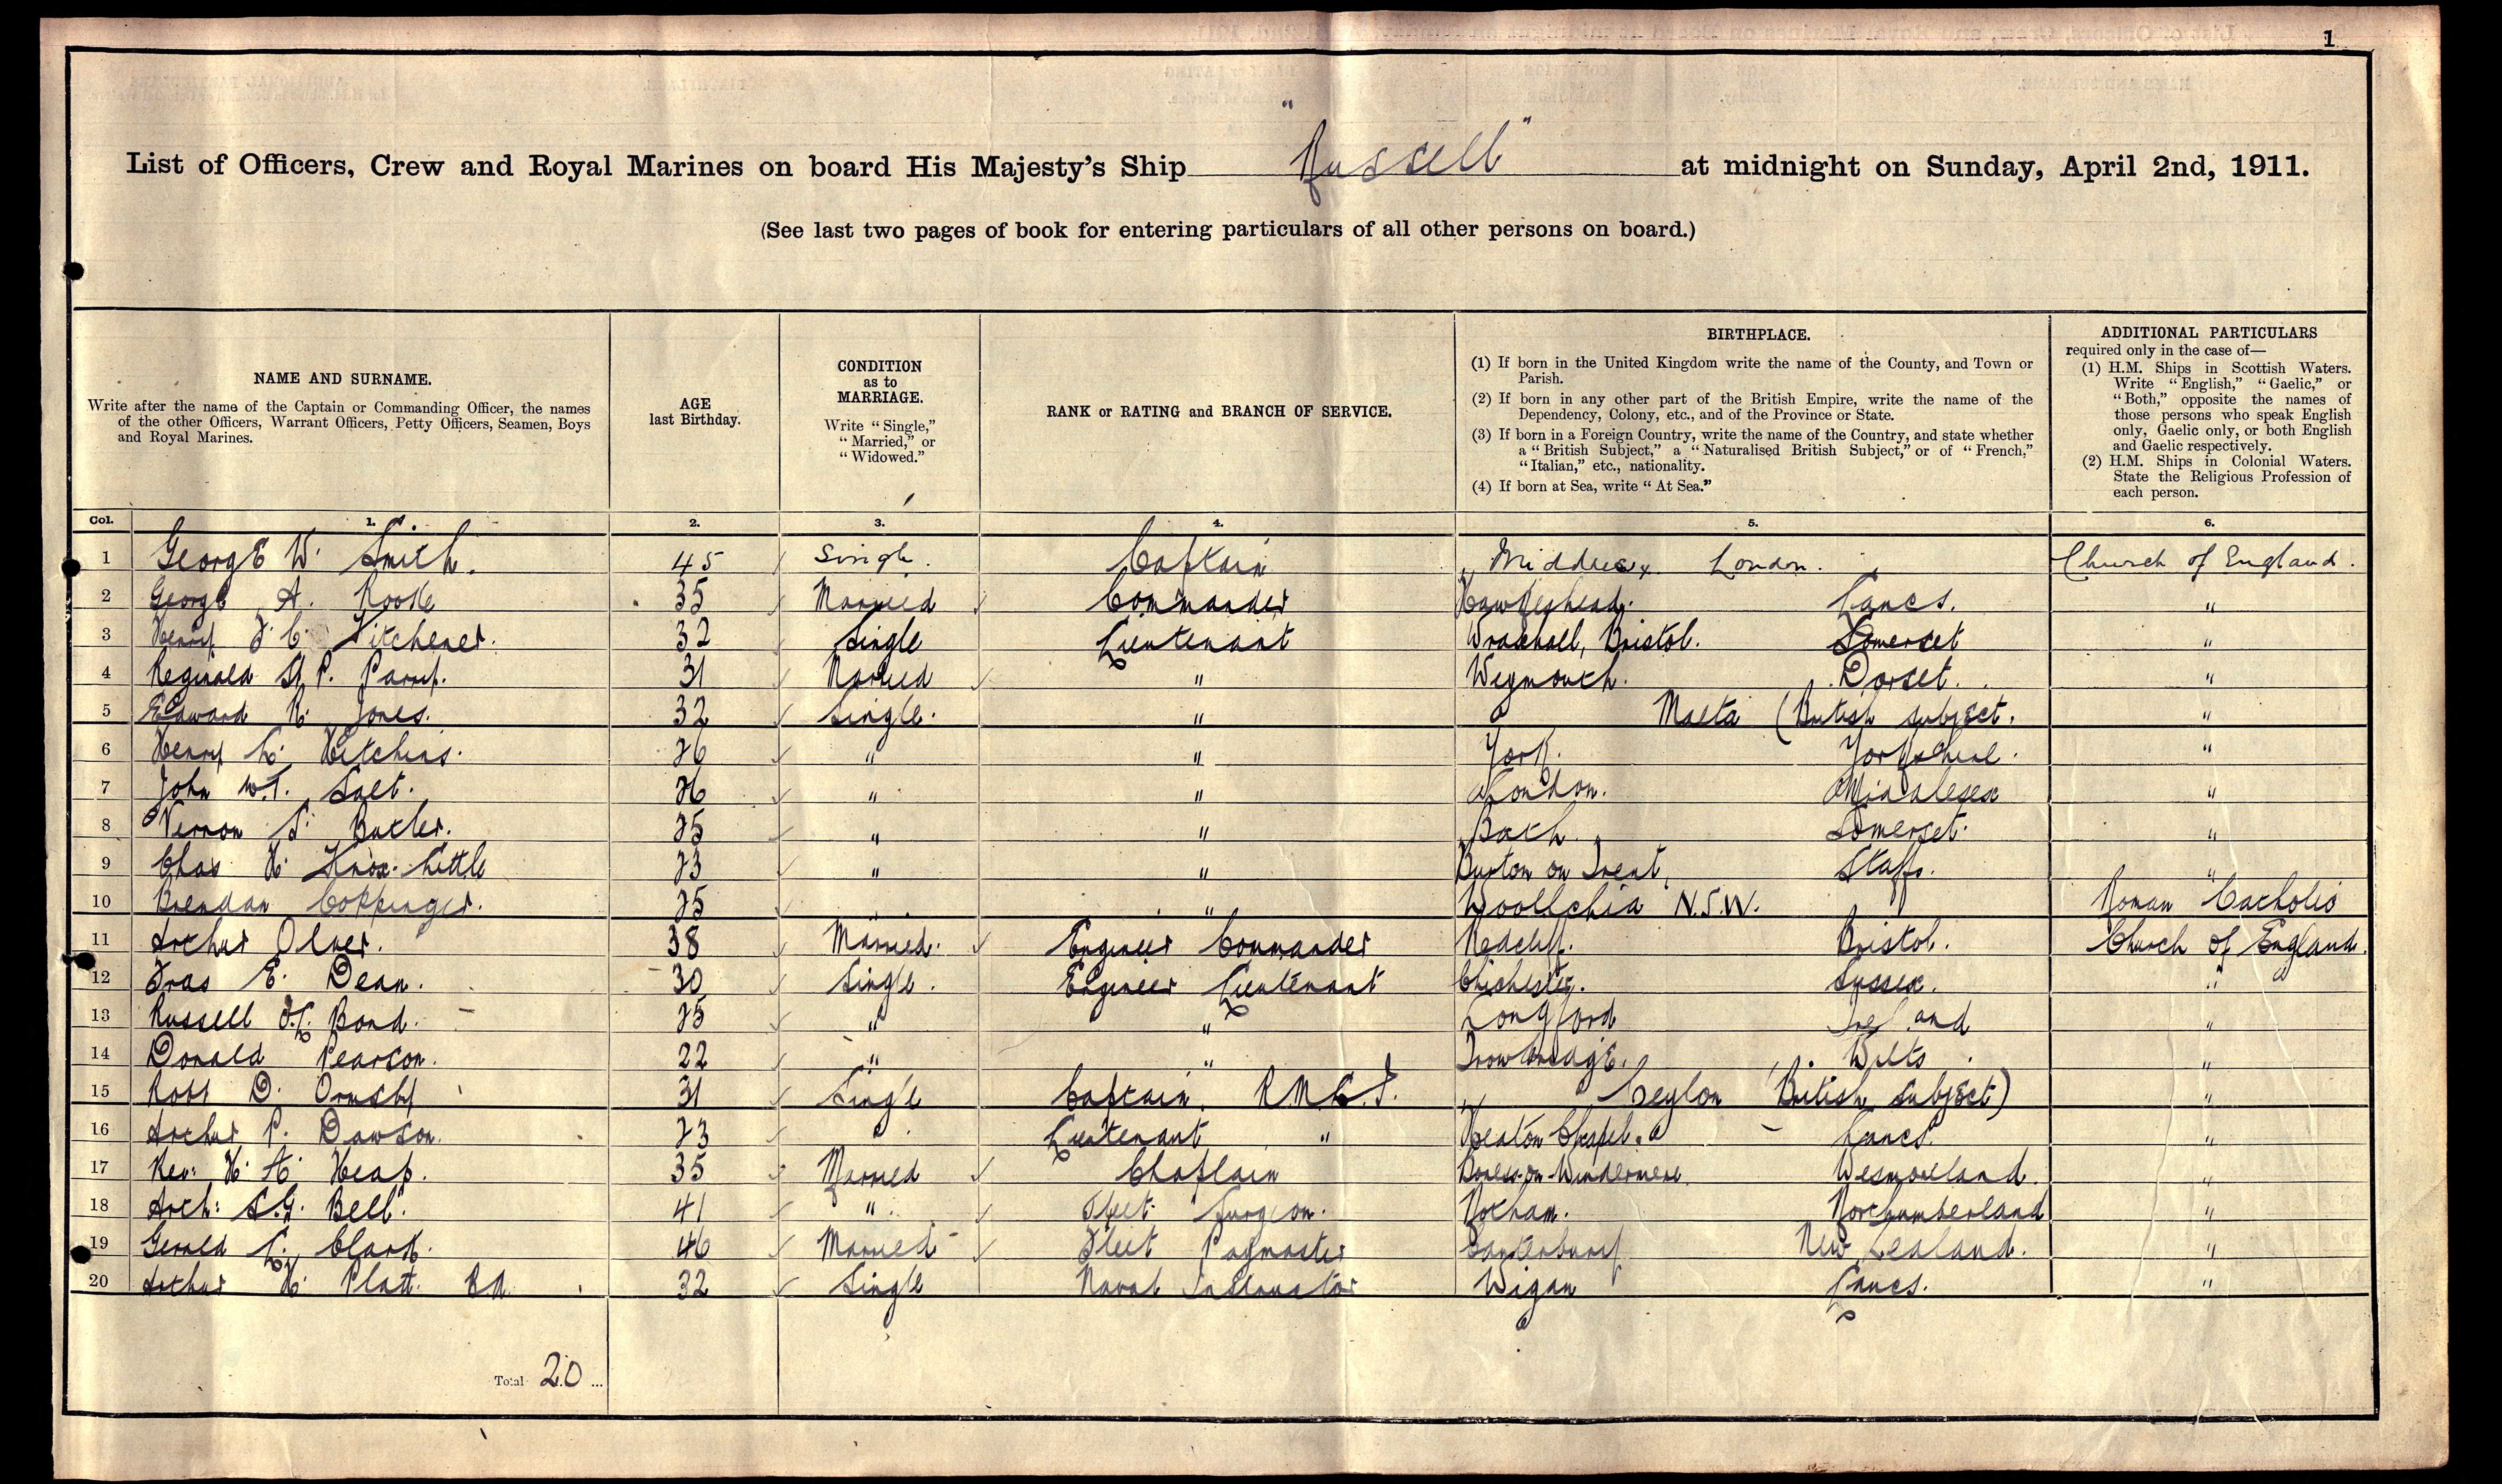 1
List of Officers, Crew and Royal Marines on board His Majesty's Ship "Russell" at midnight on Sunday, April 2nd, 1911.
(See last two pages of book for entering particulars of all other persons on board.)
NAME AND SURNAME.
Write after the name of the Captain or Commanding Officer, the names
of the other Officers, Warrant Officers, Petty Officers, Seamen, Boys
and Royal Marines.
AGE
last Birthday.
CONDITION
as to
MARRIAGE.
Write "Single,"
"Married," or
"Widowed."
RANK or RATING and BRANCH OF SERVICE.
BIRTHPLACE.
(1) If born in the United Kingdom write the name of the County, and Town or
Parish.
(2) If born in any other part of the British Empire, write the name of the
Dependency, Colony, etc., and of the Province or State.
(3) If born in a Foreign Country, write the name of the Country, and state whether
a "British Subject," a "Naturalised British Subject," or of "French,"
"Italian," etc., nationality.
(4) If born at Sea, write "At Sea."
ADDITIONAL PARTICULARS
required only in the case of—
(1) H.M. Ships in Scottish Waters.
Write "English," "Gaelic," or
"Both," opposite the names of
those persons who speak English
only, Gaelic only, or both English
and Gaelic respectively.
(2) H.M. Ships in Colonial Waters.
State the Religious Profession of
each person.
Col. 1. 2. 3. 4. 5. 6.
1 George W. Smith. 45 Single. Captain Middlesex London. Church of England.
2 George A. Rooke 35 Married Commander Hawkeshead. Lancs. "
3 Henry F. C. Kitchener. 32 Single Lieutenant Wraxhall, Bristol. Somerset "
4 Reginald St P. Parry. 31 Married " Weymouth. Dorset. "
5 Edward R. Jones. 32 Single. " Malta (British subject. "
6 Henry L. Hitchins. 26 " " York. Yorkshire. "
7 John W.T. Salt. 26 " " London. Middlesex "
8 Vernon S. Butler. 25 " " Bath. Somerset. "
9 Chas H. Knox-Little 23 " " Burton on Trent, Staffs. "
10 Brendan Coppinger. 25 " " N.S.W. Roman Catholic
11 Arthur Olver. 38 Married. Engineer Commander Redcliff. Bristol. Church of England.
12 Fras E. Dean. 30 Single. Engineer Lieutenant Chichester. Sussex. " "
13 Russell Bond. 25 " " Longford Ireland "
14 Donald Pearson. 22 " " Trowbridge. Wilts "
15 Robt D. Ormsby 31 Single Captain. R.M.L.I. Ceylon (British subject) "
16 Arthur P. Dawson. 23 " Lieutenant " Heaton Chapel. Lancs. "
17 Rev: H. A. Heap. 35 Married Chaplain Bowness-on-Windermere. Wesmoreland. "
18 Arch: S.G. Bell. 41 " Fleet Surgeon. Norham. Northumberland "
19 Gerald L. Clark. 46 Married Fleet Paymaster Canterbury New Zealand. "
20 Arthur H. Platt. BA 32 Single Naval Instructor Wigan Lancs. "
Total 20